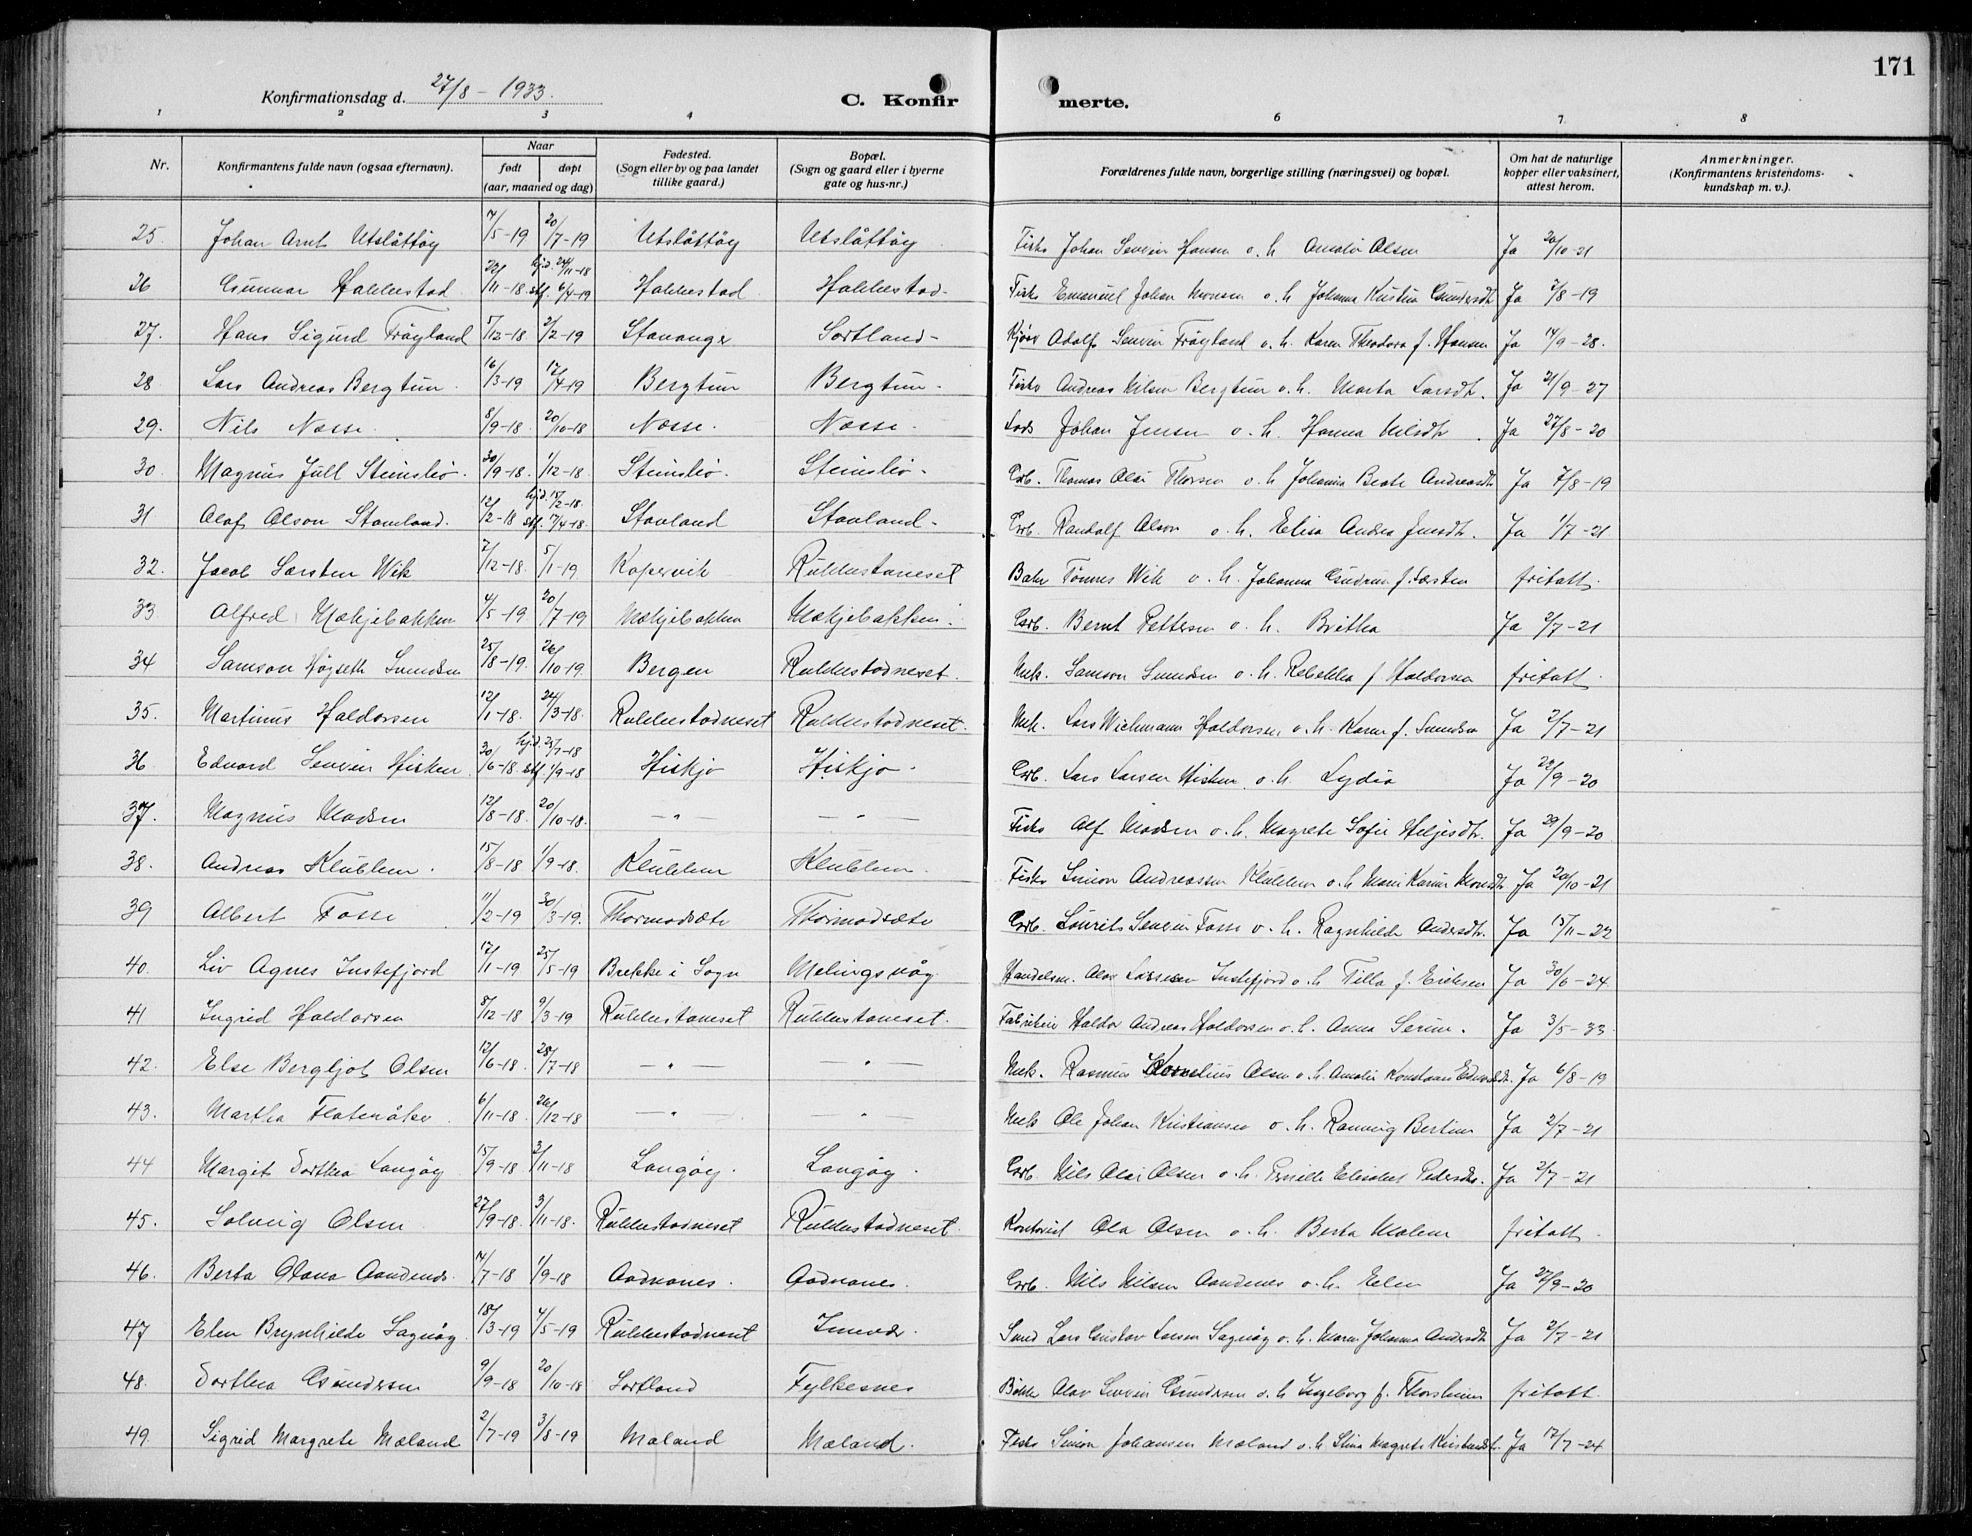 171
Konfirmationsdag d. 27/8 - 1933.
C. Konfirmerte.
1 2 3 4 6 7 8
Nr. Konfirmantens fulde navn (ogsaa efternavn). Naar født døpt (aar, maaned og dag) Fødested. (Sogn eller by og paa landet tillike gaard.) Bopæl. (Sogn og gaard eller i byerne gate og hus-nr.) Forældrenes fulde navn, borgerlige stilling (næringsvei) og bopæl. Om hat de naturlige kopper eller vaksinert, attest herom. Anmerkninger. (Konfirmantens kristendomskundskap m. v.).
25. Johan Arnt Utslåttøy 7/5-19 20/7-19 Utslåttøy Utslåttøy Fisk. Johan Severin Hansen o. h. Amalie Olsen Ja 20/10-21
26 Gunnar Hallestad 22/11-18 hj.d. 24/11-18 stf. 6/4-19 Emanuel Johan Monsen o. h. Johanna Kristina Ja 7/8-19
27. Hans Sigurd Frøyland 5/12-18 2/2-19 Stavanger Sortland Adolf Severin Frøyland o. h. Karen Theodora f. Hansen Ja 14/9-28.
28 Lars Andreas Bergtun 16/3-19 17/4-19 Bergtun Bergtun Fisk. Andreas Nilsen Bergtun o. h. Marta Larsdt. Ja 21/9-27
29. Nils Nesse 8/9-18. 20/10-18 Nesse. Nesse. Lods Johan Jensen o. h. Hanna Nilsdt. Ja 27/8-20
30. Magnus Jull Steinsbø. 30/9-18. 1/12-18. Steinsbø. Steinsbø. Grb. Thomas Olai Thorsen o. h. Johanna Beate Andreasdt. Ja 7/8-19
31. Olaf Olson Stavland. 12/2-18 hj.d. 15/2-18. stf. 7/4-18. Stavland Stavland Grb. Randolf Olson o. h. Elisa Andrea Jensdt. Ja 1/7-21
32. Jacob Sørsten Wik 7/12-18. 5/1-19 Kopervik Rubbestaneset Tønnes Wik o. h. Johanna Gudrun f. fritatt.
33 Alfred Mehjebakken 4/5-19 20/7-19 Mehjebakken Mehjebakken. Grb. Bernt Pettersen o. h. Britha Ja 2/7-21
34 Samson Høyseth Svendsen 25/8-19. 26/10-19. Bergen Rubbestadneset. Mek. Samson Svendsen o. h. Rebekka f. Haldorsen fritatt.
35. Martinus Haldorsen 12/1-18. 24/3-18. Rubbestadneset Rubbestadneset. Mek. Lars Wichmann Haldorsen o. h. Karen f. Svendsen Ja 2/7-21
36 Edvard Severin Hisken 30/6-18. hj.d. /7-18 stf. 1/9-18 Hiskjo Hiskjo. Grb. Lars Larsen Hisken o. h. Lydia Ja 28/9-20
37. Magnus Madsen 12/8-18. 20/10-18. — " — — " — Fisk. Alf Madsen o. h. Magrete Sofie Ja 29/9-20
38. Andreas Klubben. 15/8-18 1/9-18. Klubben Klubben. Fisk. Simon Andreassen Klubben o. h. Marie Karine Monsdt. Ja 20/10-21
39 Albert Fosse 11/2-19 30/3-19. Thormodsæte Thormodsæte Grb. Laurits Severin Fosse o. h. Ragnhilde Andersdt. Ja 15/11-22
40. Liv Agnes Instefjord 17/1-19 25/5-19 Brekke i Sogn Melingsvåg. Handelsm. Olav Instefjord o. h. Tilla f. Eriksen Ja 30/6-24.
41 Ingrid Haldorsen 8/12-18 9/3-19 Rubbestaneset Rubbestaneset. Haldor Andreas Haldorsen o. h. Anna Serine. Ja 3/5-33
42. Else Bergljot Olsen 12/6-18. 28/7-18 — " — — " — Mek. Rasmus Kornelius Olsen o. h. Amalie Konstanse Ja 6/8-19
43. Martha Flatenåker 6/11-18. 26/12-18 — " — — " — Mek. Ole Johan Kristiansen o. h. Rannveig Bertine Ja 2/7-21
44 Margit Dorthea Langøy 15/9-18. 3/11-18 Langøy. Langøy. Grb. Nils Olai Olsen o. h. Pernille Elisabet Pedersdt. Ja 2/7-21
45. Solveig Olsen 27/9-18. 3/11-18. Rubbestadneset Rubbestadneset. Kontorist Ola Olsen o. h. Berta Malene fritatt.
46. Berta Olava Aandenes. 14/7-18 1/9-18 Aadnanes. Aadnanes. Grb. Nils Nilsen Aandenes o. h. Elen Ja 27/9-20
47 Elen Brynhilde Sagvåg 18/3-19 4/5-19 Rubbestadneset Innvær. Smed Lars Gustav Larsen Sagvåg o. h. Maren Johanna Andersdt. Ja 2/7-21
48. Dorthea Gundersen 9/9-18 20/10-18 Sortland Fylkesnes Olav Severin Gundersen o. h. Ingeborg f. Thorsheim fritatt.
49. Sigrid Margrete Mæland 2/7-19 3/8-19 Mæland Mæland. Fisk. Simon Johansen Mæland o. h. Stina Magrete Ja 17/7-24